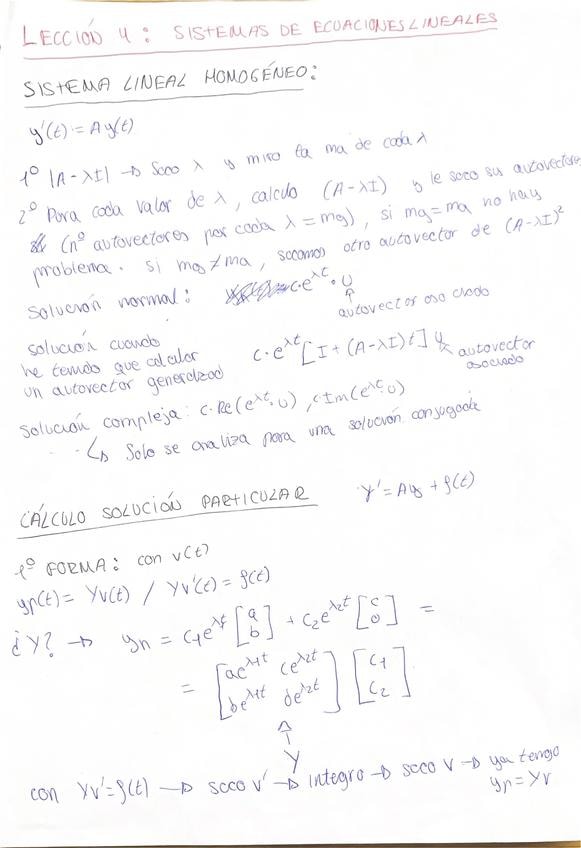 LECCIÓN 4: SISTEMAS DE ECUACIONES LINEALES
SISTEMA LINEAL HOMOGÉNEO:
y'(t) = Ay(t)
1º |A - λI| → Saco λ y miro la ma de cada λ
2º Para cada valor de λ, calculo (A - λI) y le saco sus autovectores
(nº autovectores por cada λ = mg), si mg = ma no hay
problema. si mg ≠ ma, sacamos otro autovector de (A - λI)²
Solución normal: c·e^λt · u
autovector asociado
solución cuando
he tenido que calcular
un autovector generalizad
c·e^λt [I + (A - λI)t] u
autovector
asociado
Solución compleja: c·Re(e^λt·u), c Im(e^λt·u)
↳ Solo se analiza para una solución conjugada
CÁLCULO SOLUCIÓN PARTICULAR
y' = Ay + f(t)
1º FORMA: con v(t)
yp(t) = Yv(t) / Yv'(t) = f(t)
¿Y? → yn = c1e^λ1t [a b] + c2e^λ2t [c d] =
= [ae^λ1t ce^λ2t be^λ1t de^λ2t] [c1 c2]
Y
con Yv' = f(t) → saco v' → integro → saco v → ya tengo
yp = Yv